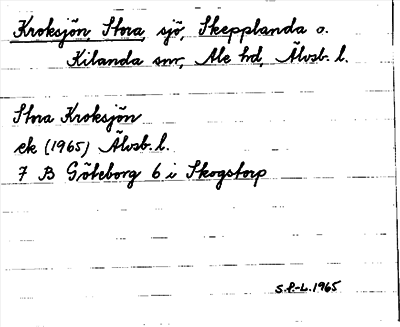 Kroksjön, Stora, sjö, Skepplanda o.
Kilanda snr, Ale hd, Älvsb. l.
Stora Kroksjön
ek (1965) Älvsb. l.
7 B Göteborg 6 i Skogstorp
S.P-L. 1965